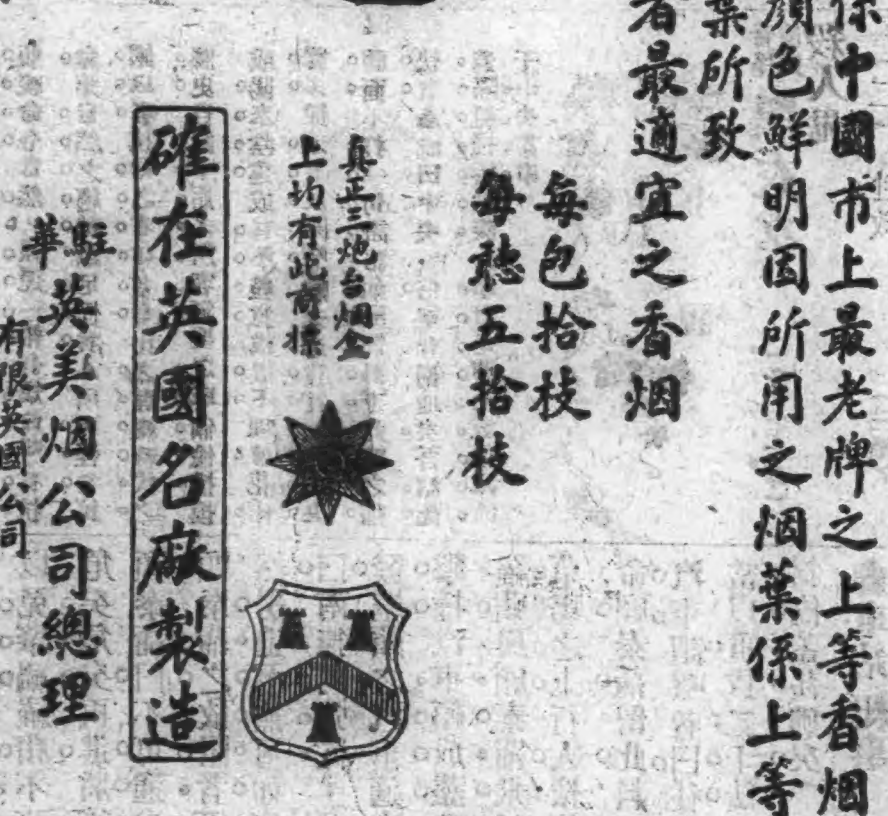 係中國市上最老牌之上等香烟
顏色鮮明因所用之烟葉係上等
葉所致
者最適宜之香烟
每包拾枝
每聽五拾枝
真正三炮台烟盒
上均有此商標
確在英國名廠製造
駐華英美烟公司總理
有限英國公司